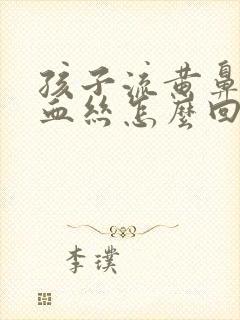 孩子流黄鼻
血丝怎麼回
李璞